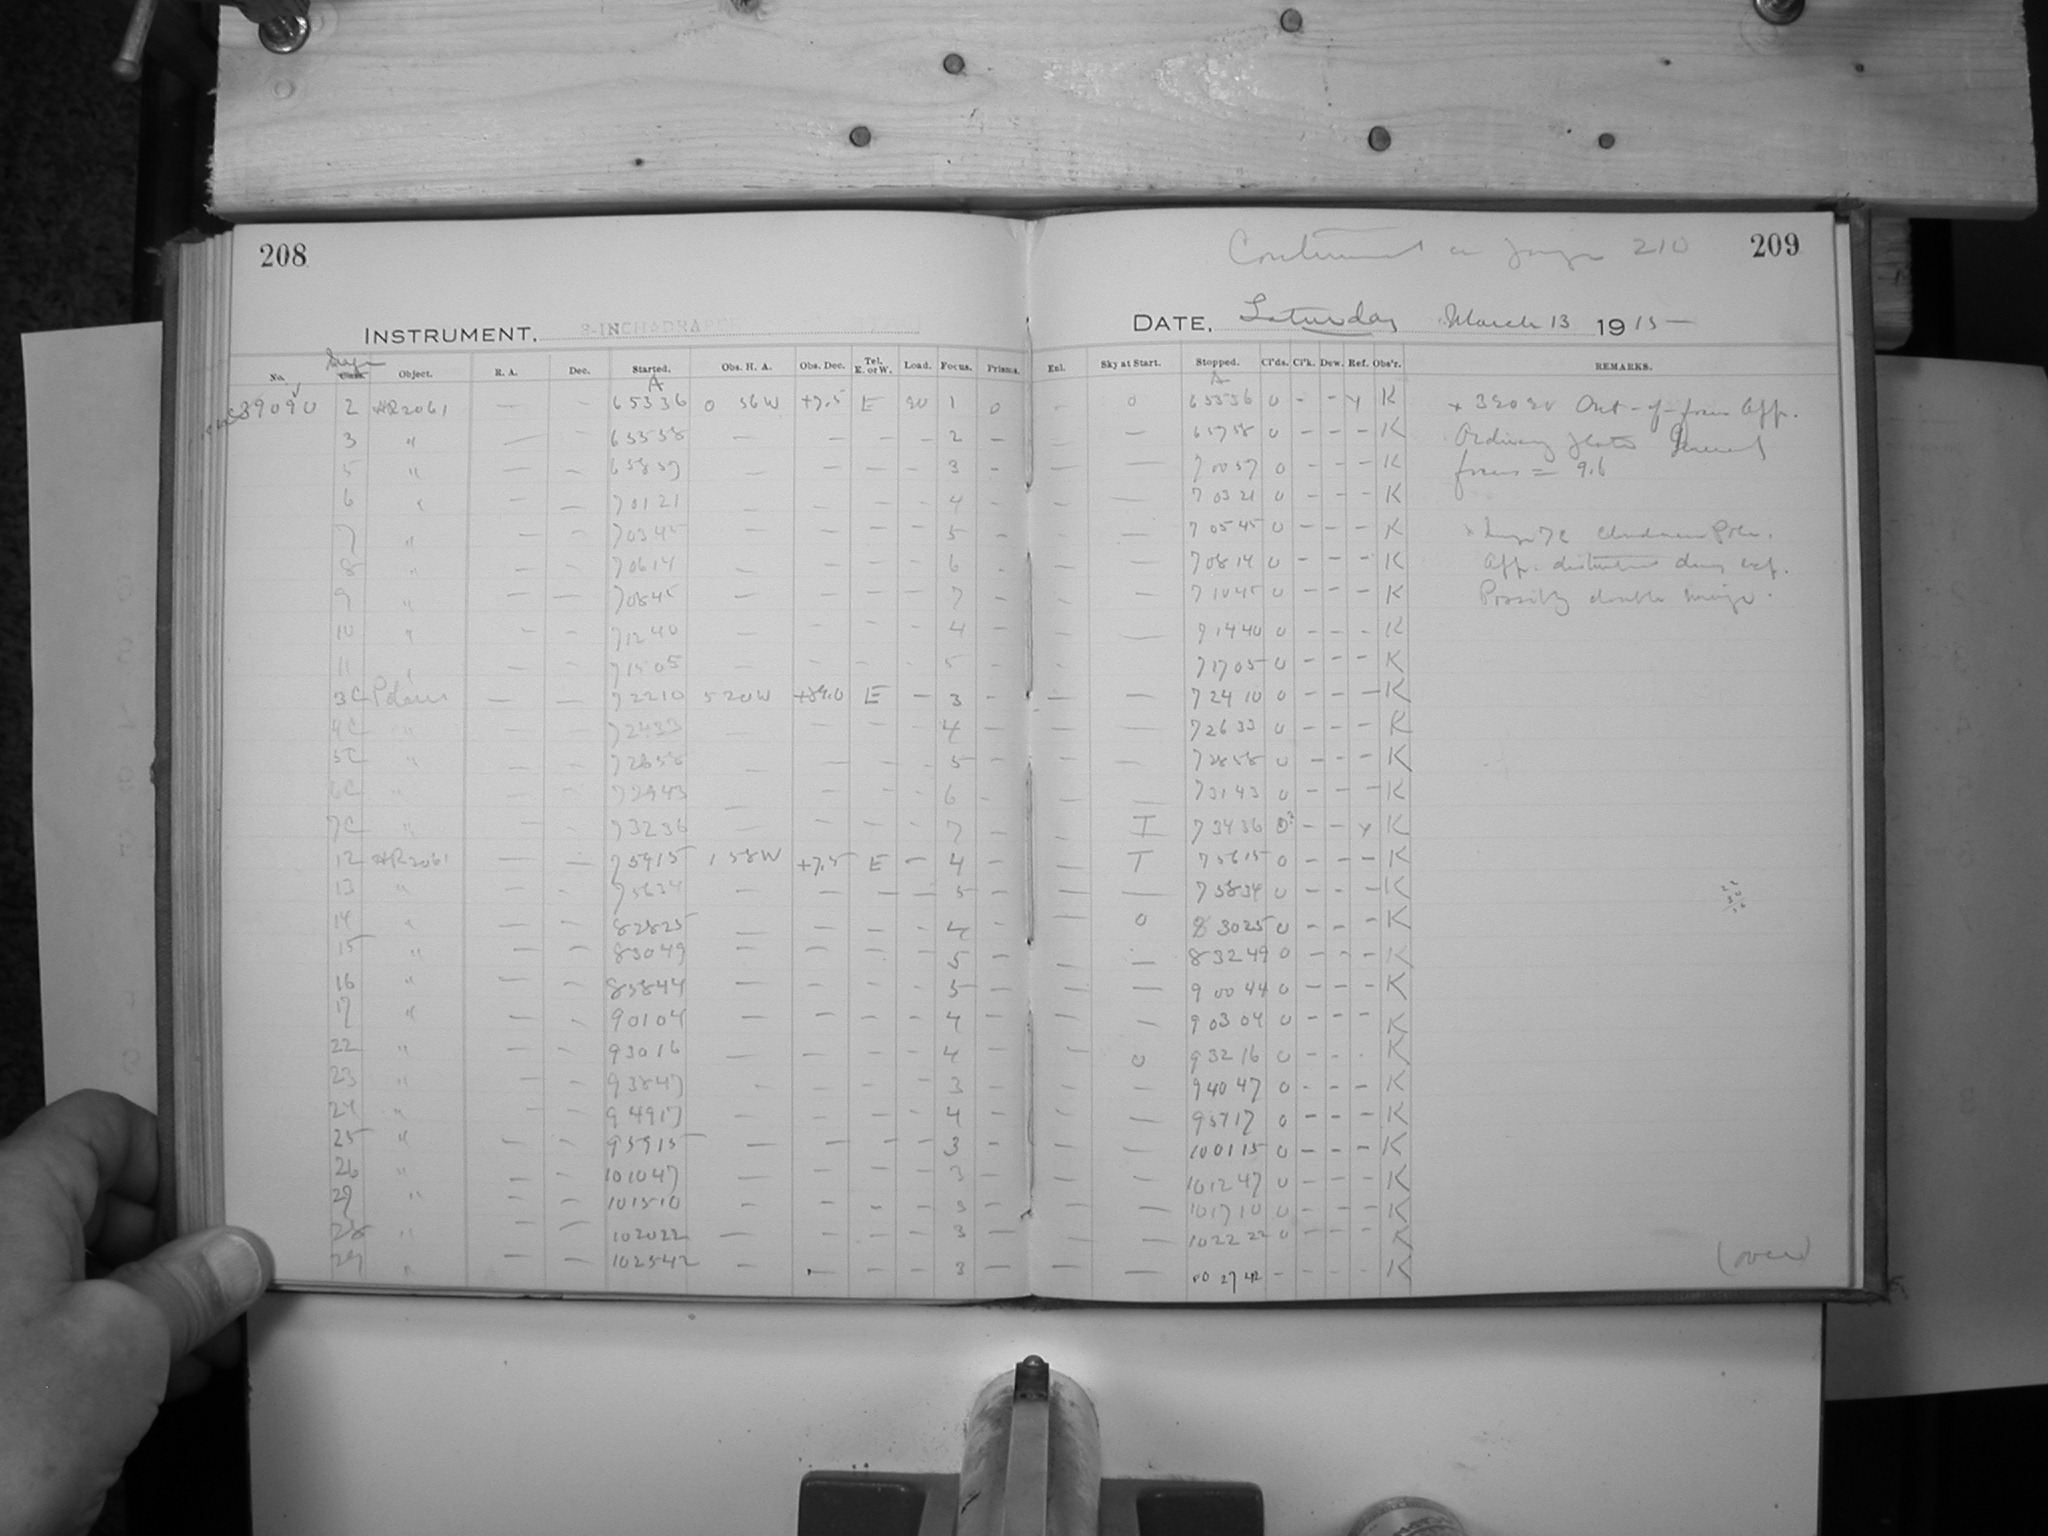 208
209
Continued on page 210
INSTRUMENT, 8-INCH DRAPER
DATE, Saturday March 13 1915
No. Object. R. A. Dec. Started. Obs. H. A. Obs. Dec. Tel. E. or W. Load. Focus. Prisms. Enl. Sky at Start. Stopped. Cl'ds. Cl'k. Dew. Ref. Obs'r. REMARKS.
A A
39090 2 HR2061 — — 65336 0 56W +7.5 E 90 1 0 - 0 65536 0 - - y K
3 " — — 65558 — — — — 2 — — — 65758 0 - - - K
5 " — — 65857 — — — — 3 — — — 70057 0 - - - K
6 " — — 70121 — — — — 4 — — — 70321 0 - - - K
7 " — — 70345 — — — — 5 — — — 70545 0 - - - K
8 " — — 70614 — — — — 6 — — — 70814 0 - - - K
9 " — — 70845 — — — — 7 — — — 71045 0 - - - K
10 " — — 71240 — — — — 4 — — — 71440 0 - - - K
11 " — — 71505 — — — — 5 — — — 71705 0 - - - K
3C Polaris — — 72210 5 20W +89.0 E — 3 — — — 72410 0 - - - K
4C " — — 72433 — — — — 4 — — — 72633 0 - - - K
5C " — — 72658 — — — — 5 — — — 72858 0 - - - K
6C " — — 72943 — — — — 6 — — — 73143 0 - - - K
7C " — — 73236 — — — — 7 — — I 73436 0? - - y K
12 HR2061 — — 75415 1 58W +7.5 E — 4 — — T 75615 0 - - - K
13 " — — 75634 — — — — 5 — — — 75834 0 - - - K
14 " — — 82825 — — — — 4 — — 0 83025 0 - - - K
15 " — — 83049 — — — — 5 — — — 83249 0 - - - K
16 " — — 85844 — — — — 5 — — — 90044 0 - - - K
17 " — — 90104 — — — — 4 — — — 90304 0 - - - K
22 " — — 93016 — — — — 4 — — 0 93216 0 - - - K
23 " — — 93847 — — — — 3 — — — 94047 0 - - - K
24 " — — 94917 — — — — 4 — — — 95717 0 - - - K
25 " — — 95915 — — — — 3 — — — 100115 0 - - - K
26 " — — 101047 — — — — 3 — — — 101247 0 - - - K
27 " — — 101510 — — — — 3 — — — 101710 0 - - - K
28 " — — 102022 — — — — 3 — — — 102222 0 - - - K
29 " — — 102542 — — — — 3 — — — 102742 - - - - K
x 39090 Out-of-focus App.
Ordinary plates General
focus = 9.6
x Image 7C Clouds near Pole.
App. disturbed during exp.
Possibly double image.
(over)